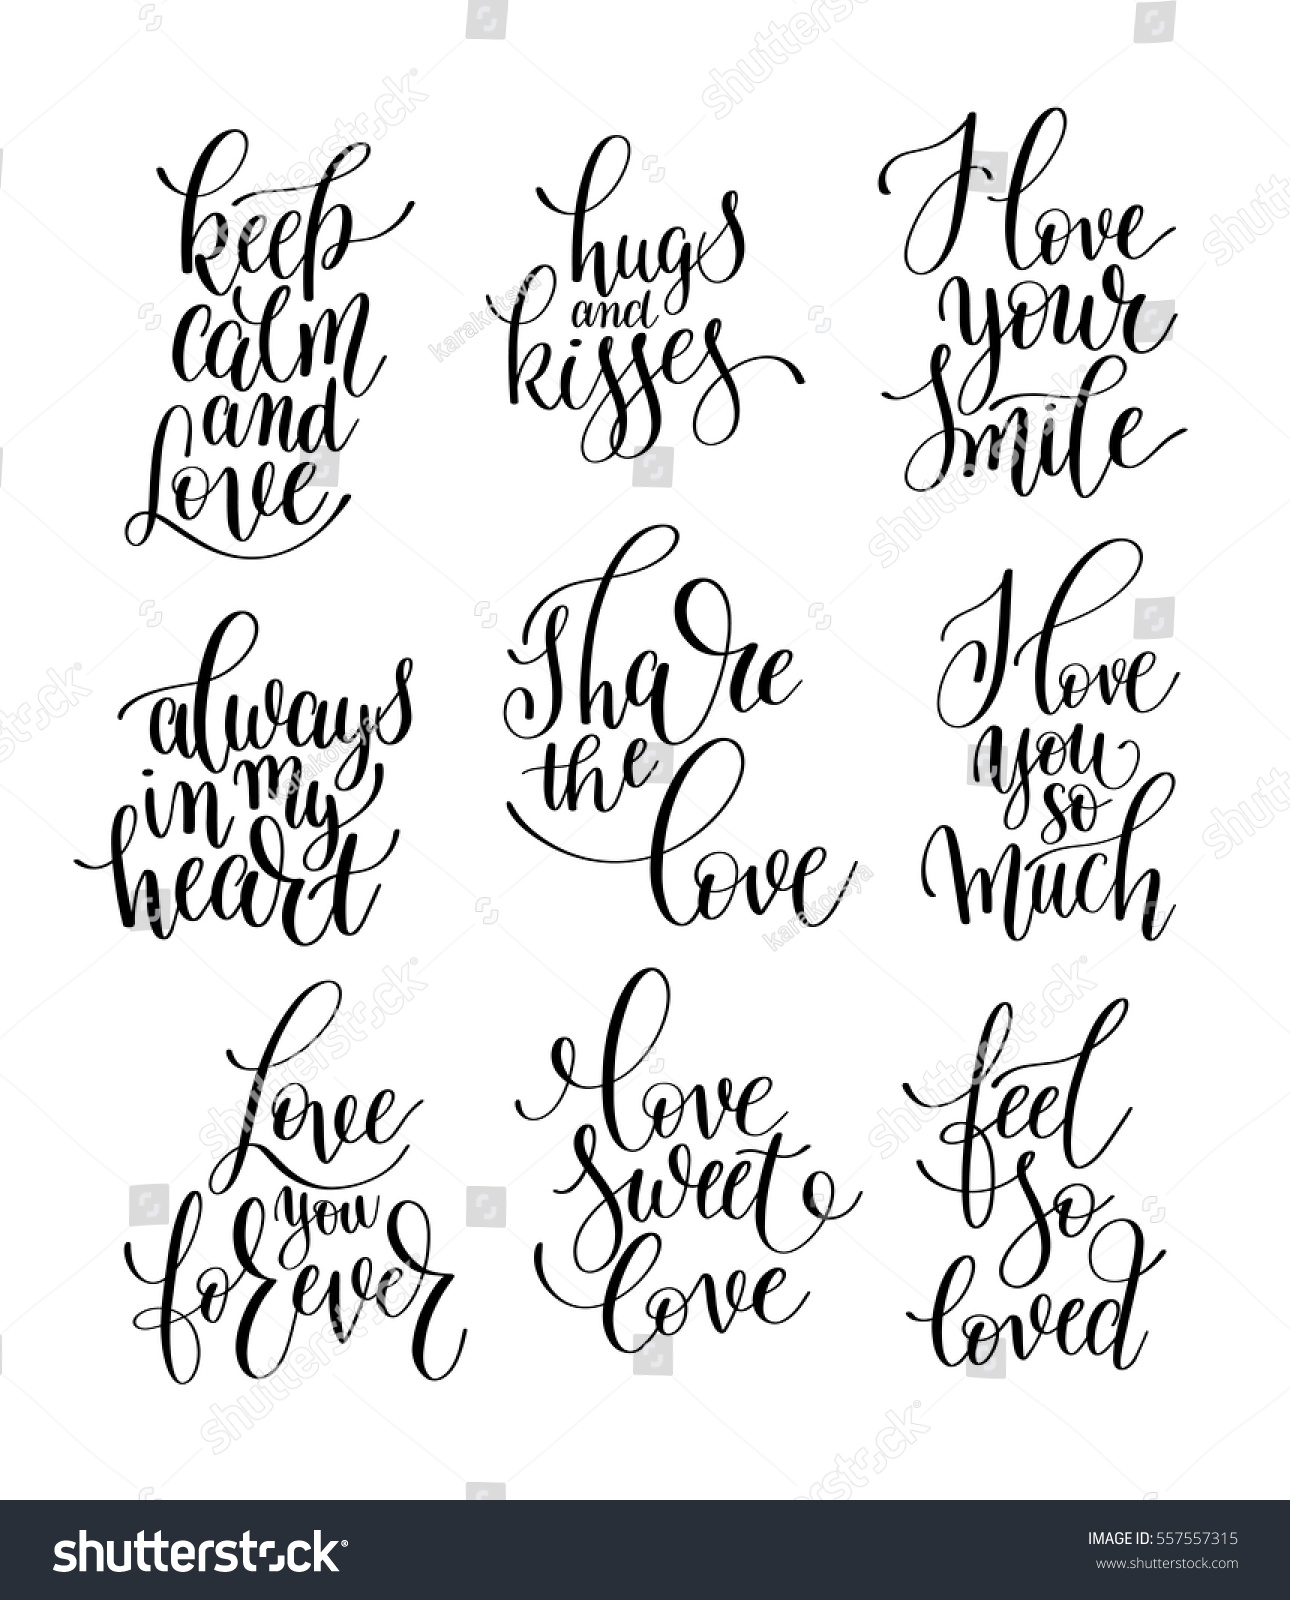 keep
calm
and
Love
hugs
and
kisses
I love
your
Smile
always
in my
heart
Share
the
love
I love
you
so
much
Love
you
forever
love
sweet
love
feel
so
loved
shutterstock
karakotsya
karakotsya
karakotsya
shutterstock
IMAGE ID: 557557315
www.shutterstock.com